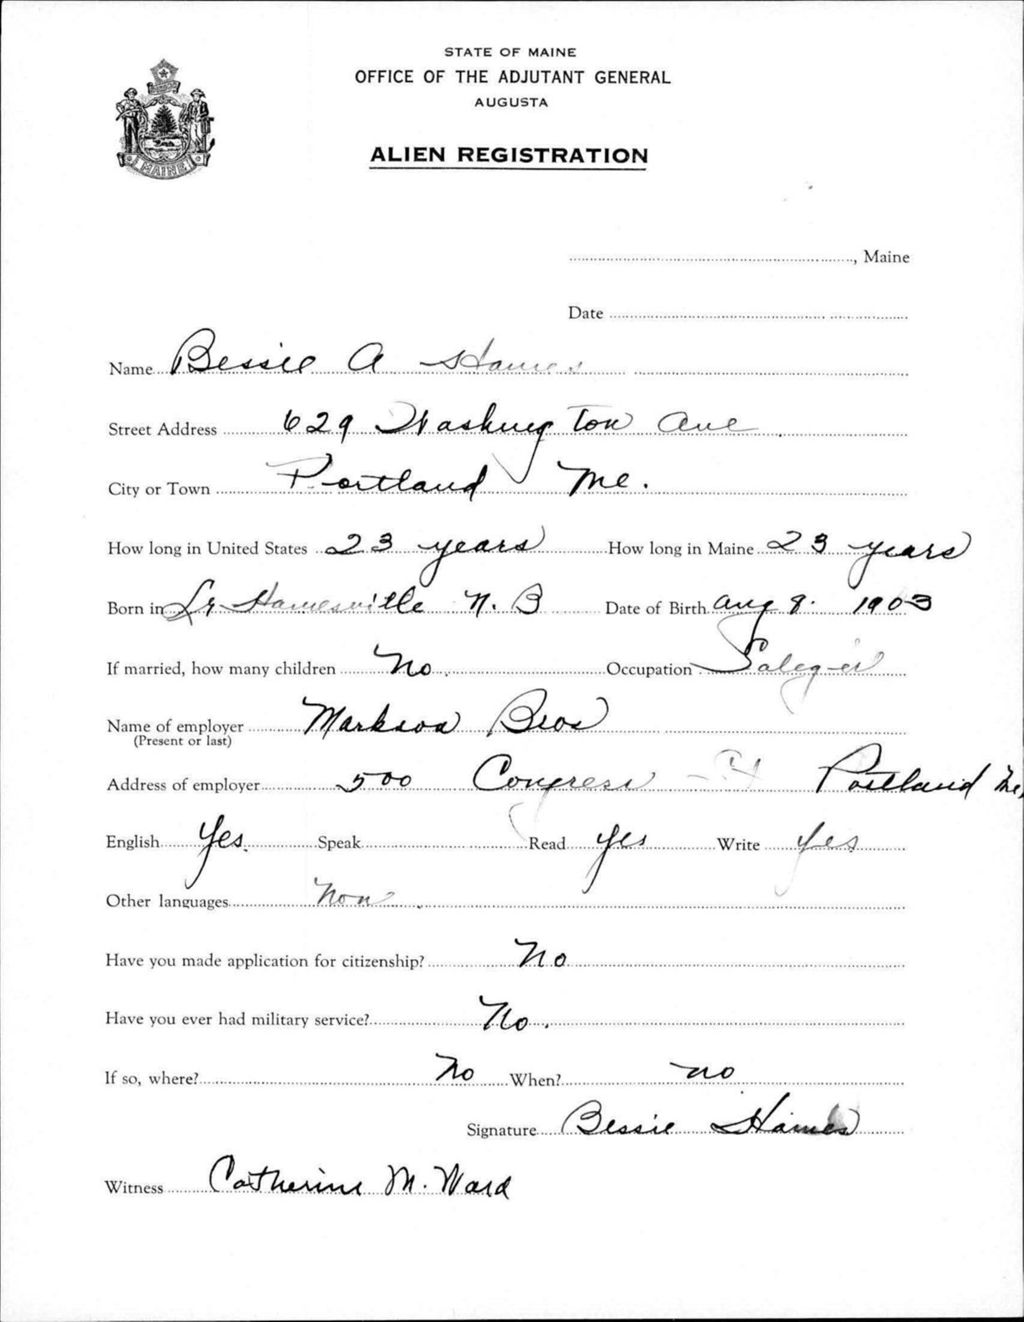 STATE OF MAINE
OFFICE OF THE ADJUTANT GENERAL
AUGUSTA
ALIEN REGISTRATION
MAINE
, Maine
Date
Name Bessie A Hawes
Street Address 629 Washington Ave
City or Town Portland Me.
How long in United States 23 years How long in Maine 23 years
Born in Hawesville N. B Date of Birth Aug 8. 1903
If married, how many children No. Occupation
Name of employer Markson Bros
(Present or last)
Address of employer 500 Congress St Portland Me,
English Yes. Speak Read yes Write yes
Other languages Non
Have you made application for citizenship? No
Have you ever had military service? No.
If so, where? No When? no
Signature Bessie
Witness Catherine M. Ward